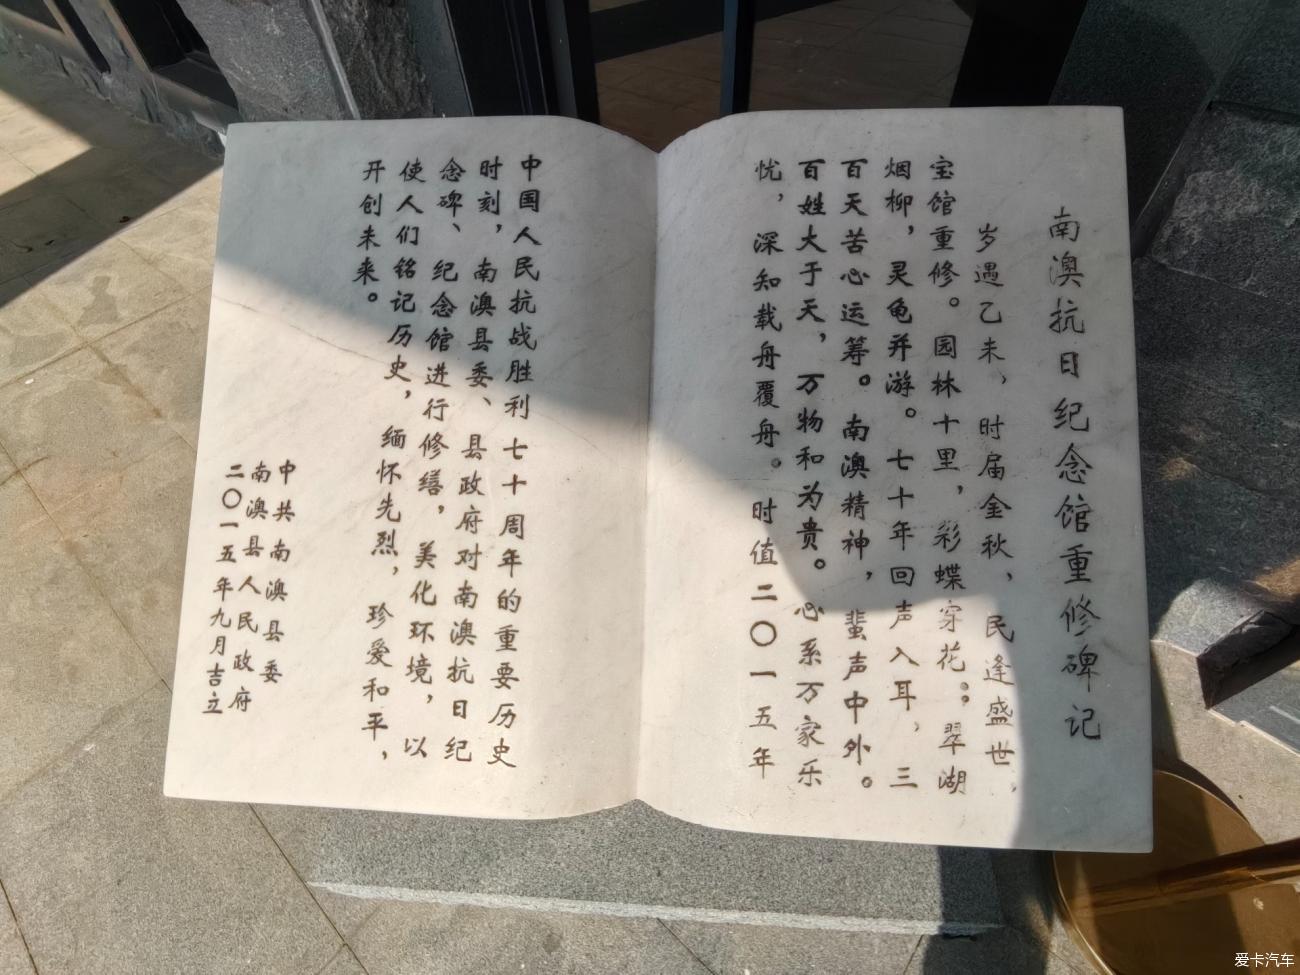 南澳抗日纪念馆重修碑记
岁遇乙未、时届金秋、民逢盛世、
宝馆重修。园林十里，彩蝶穿花；翠湖
烟柳，灵龟并游。七十年回声入耳、三
百天苦心运筹。南澳精神，蜚声中外。
百姓大于天，万物和为贵。心系万家乐
忧，深知载舟覆舟。时值二〇一五年
中国人民抗战胜利七十周年的重要历史
时刻，南澳县委、县政府对南澳抗日纪
念碑、纪念馆进行修缮，美化环境，以
使人们铭记历史，缅怀先烈，珍爱和平，
开创未来。
中共南澳县委
南澳县人民政府
二〇一五年九月吉立
爱卡汽车